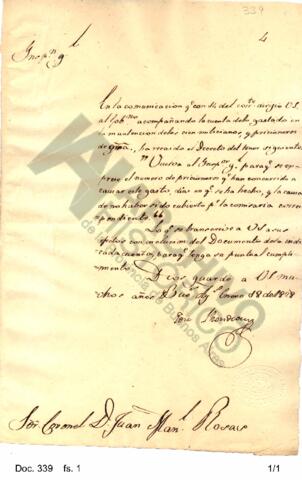 339
4
Insp.ⁿ g.ˡ
En la comunicacion q.ᵉ con 14 del corr.ᵗᵉ dirigio VS.
al Gob.ⁿᵒ acompañando la cuenta de lo gastado en
la manutencion de los cien milicianos, y pricioneros
de grrã, ha recaido el Decreto del tenor siguiente
"Vuelva al Insp.ᵒʳ g.ˡ para q.ᵉ se ex
prese el numero de pricioneros q.ᵉ han concurrido a
causar este gasto, dias en q.ᵉ se ha hecho, y la causa
de no haber sido cubierto p.ʳ la comisaria corres
pondiente"
Lo q.ᵉ se transcrive a VS. a sus
efectos con inclusion del Documento de la indi
cada cuenta, para q.ᵉ tenga su puntual cumpli
miento.
Dios guarde a VS. mu
chos años. Bue.ˢ Ay.ˢ Enero 18 de 1828
José Rondeau
Sõr. Coronel D. Juan Man.ˡ Rosas
Archivo Histórico
de la Provincia de Buenos Aires
Doc. 339 fs. 1
1/1